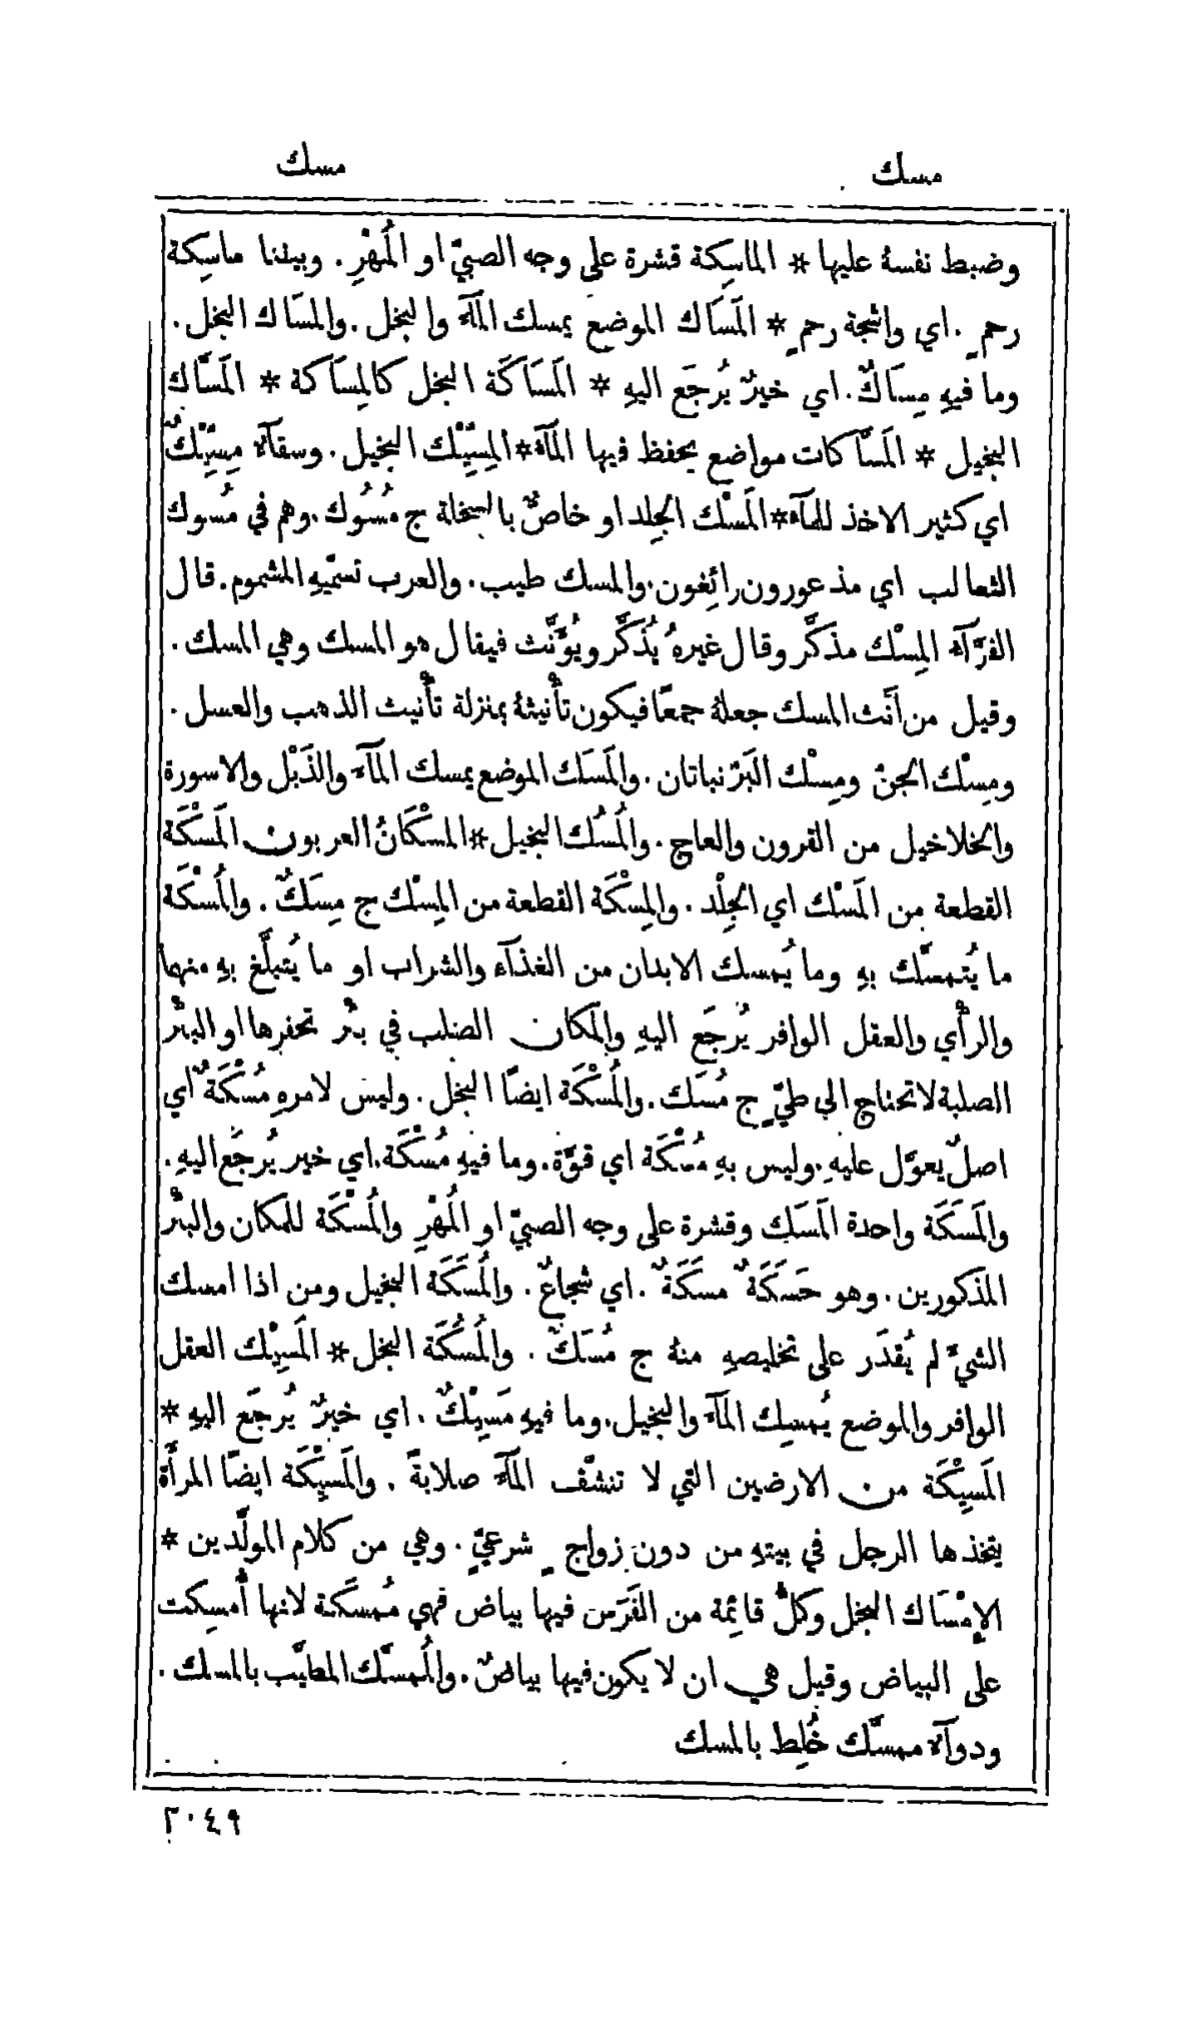 مسك
مسك
وضبط نفسهُ عليها * الماسِكة قشرة على وجه الصبيّ او المُهْرِ. وبيننا ماسِكة
رحمٍ. اي واشجة رحمٍ * المَسَاك الموضع يمسك المآءَ والبخل. والمسَاك البخل.
وما فيهِ مِسَاكٌ. اي خيرٌ يُرجَع اليهِ * المَسَاكَة البخل كالمِسَاكة * المَسَّاك
البخيل * المَسَّاكات مواضع يحفظ فيها المآءُ * المِسِّيْك البخيل. وسقآءٌ مِسِّيْكٌ
اي كثير الاخذ للمآءِ * المَسْك الجِلد او خاصٌّ بالسخلة ج مُسُوك. وهم في مُسوك
الثعالب اي مذعورون رائغون. والمسك طيب. والعرب تسمّيهِ المشموم. قال
الفرَّآء المِسْك مذكَّر وقال غيرهُ يُذكَّر ويُؤَنَّث فيقال هو المسك وهي المسك.
وقيل من أنَّث المسك جعلهُ جمعًا فيكون تأْنيثهُ بمنزلة تأْنيث الذهب والعسل.
ومِسْك الجنّ ومِسْك البَرّ نباتان. والمَسَك الموضع يمسك المآءَ والذَبْل والاسورة
والخلاخيل من القرون والعاج. والمُسُك البخيل * المسْكَانُ العربون المَسْكَة
القطعة من المَسْك اي الجِلْد. والمِسْكَة القطعة من المِسْك ج مِسَكٌ. والمُسْكَة
ما يُتمسَّك بهِ وما يُمسك الابدان من الغذآء والشراب او ما يُتبلَّغ بهِ منها
والرأْي والعقل الوافر يُرجَع اليهِ والمكان الصلب في بئْر تحفرها او البئْر
الصلبة لا تحتاج الى طيٍّ ج مُسَك. والمُسْكَة ايضًا البخل. وليس لامرهِ مُسْكَةٌ اي
اصلٌ يعوَّل عليهِ. وليس بهِ مُسْكَة اي قوَّة. وما فيهِ مُسْكَة. اي خير يُرجَع اليهِ.
والمَسَكَة واحدة المَسَك وقشرة على وجه الصبيّ او المُهْرِ والمُسْكَة للمكان والبئْر
المذكورين. وهو حَسَكَةٌ مسَكَةٌ. اي شجاعٌ. والمُسَكَة البخيل ومن اذا امسك
الشيءَ لم يُقدَر على تخليصهِ منهُ ج مُسَكٌ. والمُسُكَة البخل * المَسِيْك العقل
الوافر والموضع يُمسِك المآءَ والبخيل. وما فيهِ مَسِيْكٌ. اي خيرٌ يُرجَع اليهِ *
المَسِيْكَة من الارضين التي لا تنشّف المآءَ صلابةً. والمَسِيْكَة ايضًا المرأَة
يتخذها الرجل في بيتهِ من دون زواجٍ شرعيٍّ. وهي من كلام المولّدين *
الإمْسَاك البخل وكلُّ قائِمة من الفَرَس فيها بياض فهي مُمسَكة لانها أُمسِكت
على البياض وقيل هي ان لا يكون فيها بياضٌ. والمُمسَّك المطيَّب بالمسك.
ودوآءٌ ممسَّك خُلِط بالمسك
٢٠٤٩